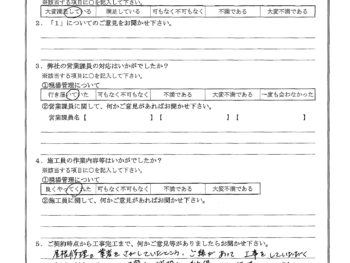 ※該当する項目に○を記入して下さい。
大変満足している 満足している 可もなく不可もなく 不満である 大変不満である
2．「1」についてのご意見をお聞かせ下さい。
3．弊社の営業課員の対応はいかがでしたか？
※該当する項目に○を記入して下さい。
①現場管理について
行き届いていた 可もなく不可もなく 不満である 大変不満である 一度も会わなかった
②営業課員に関して、何かご意見があればお聞かせ下さい。
営業課員名【 】【 】【 】
4．施工員の作業内容等はいかがでしたか？
※該当する項目に○を記入して下さい。
①現場管理について
良くやってくれた 可もなく不可もなく 不満である 大変不満である
②施工員に関して、何かご意見があればお聞かせ下さい。
5．ご契約時点から工事完工まで、何かご意見等がありましたらお聞かせ下さい。
屋根修理の業者をさがしていたところ、ご縁があって 工事をしていただく